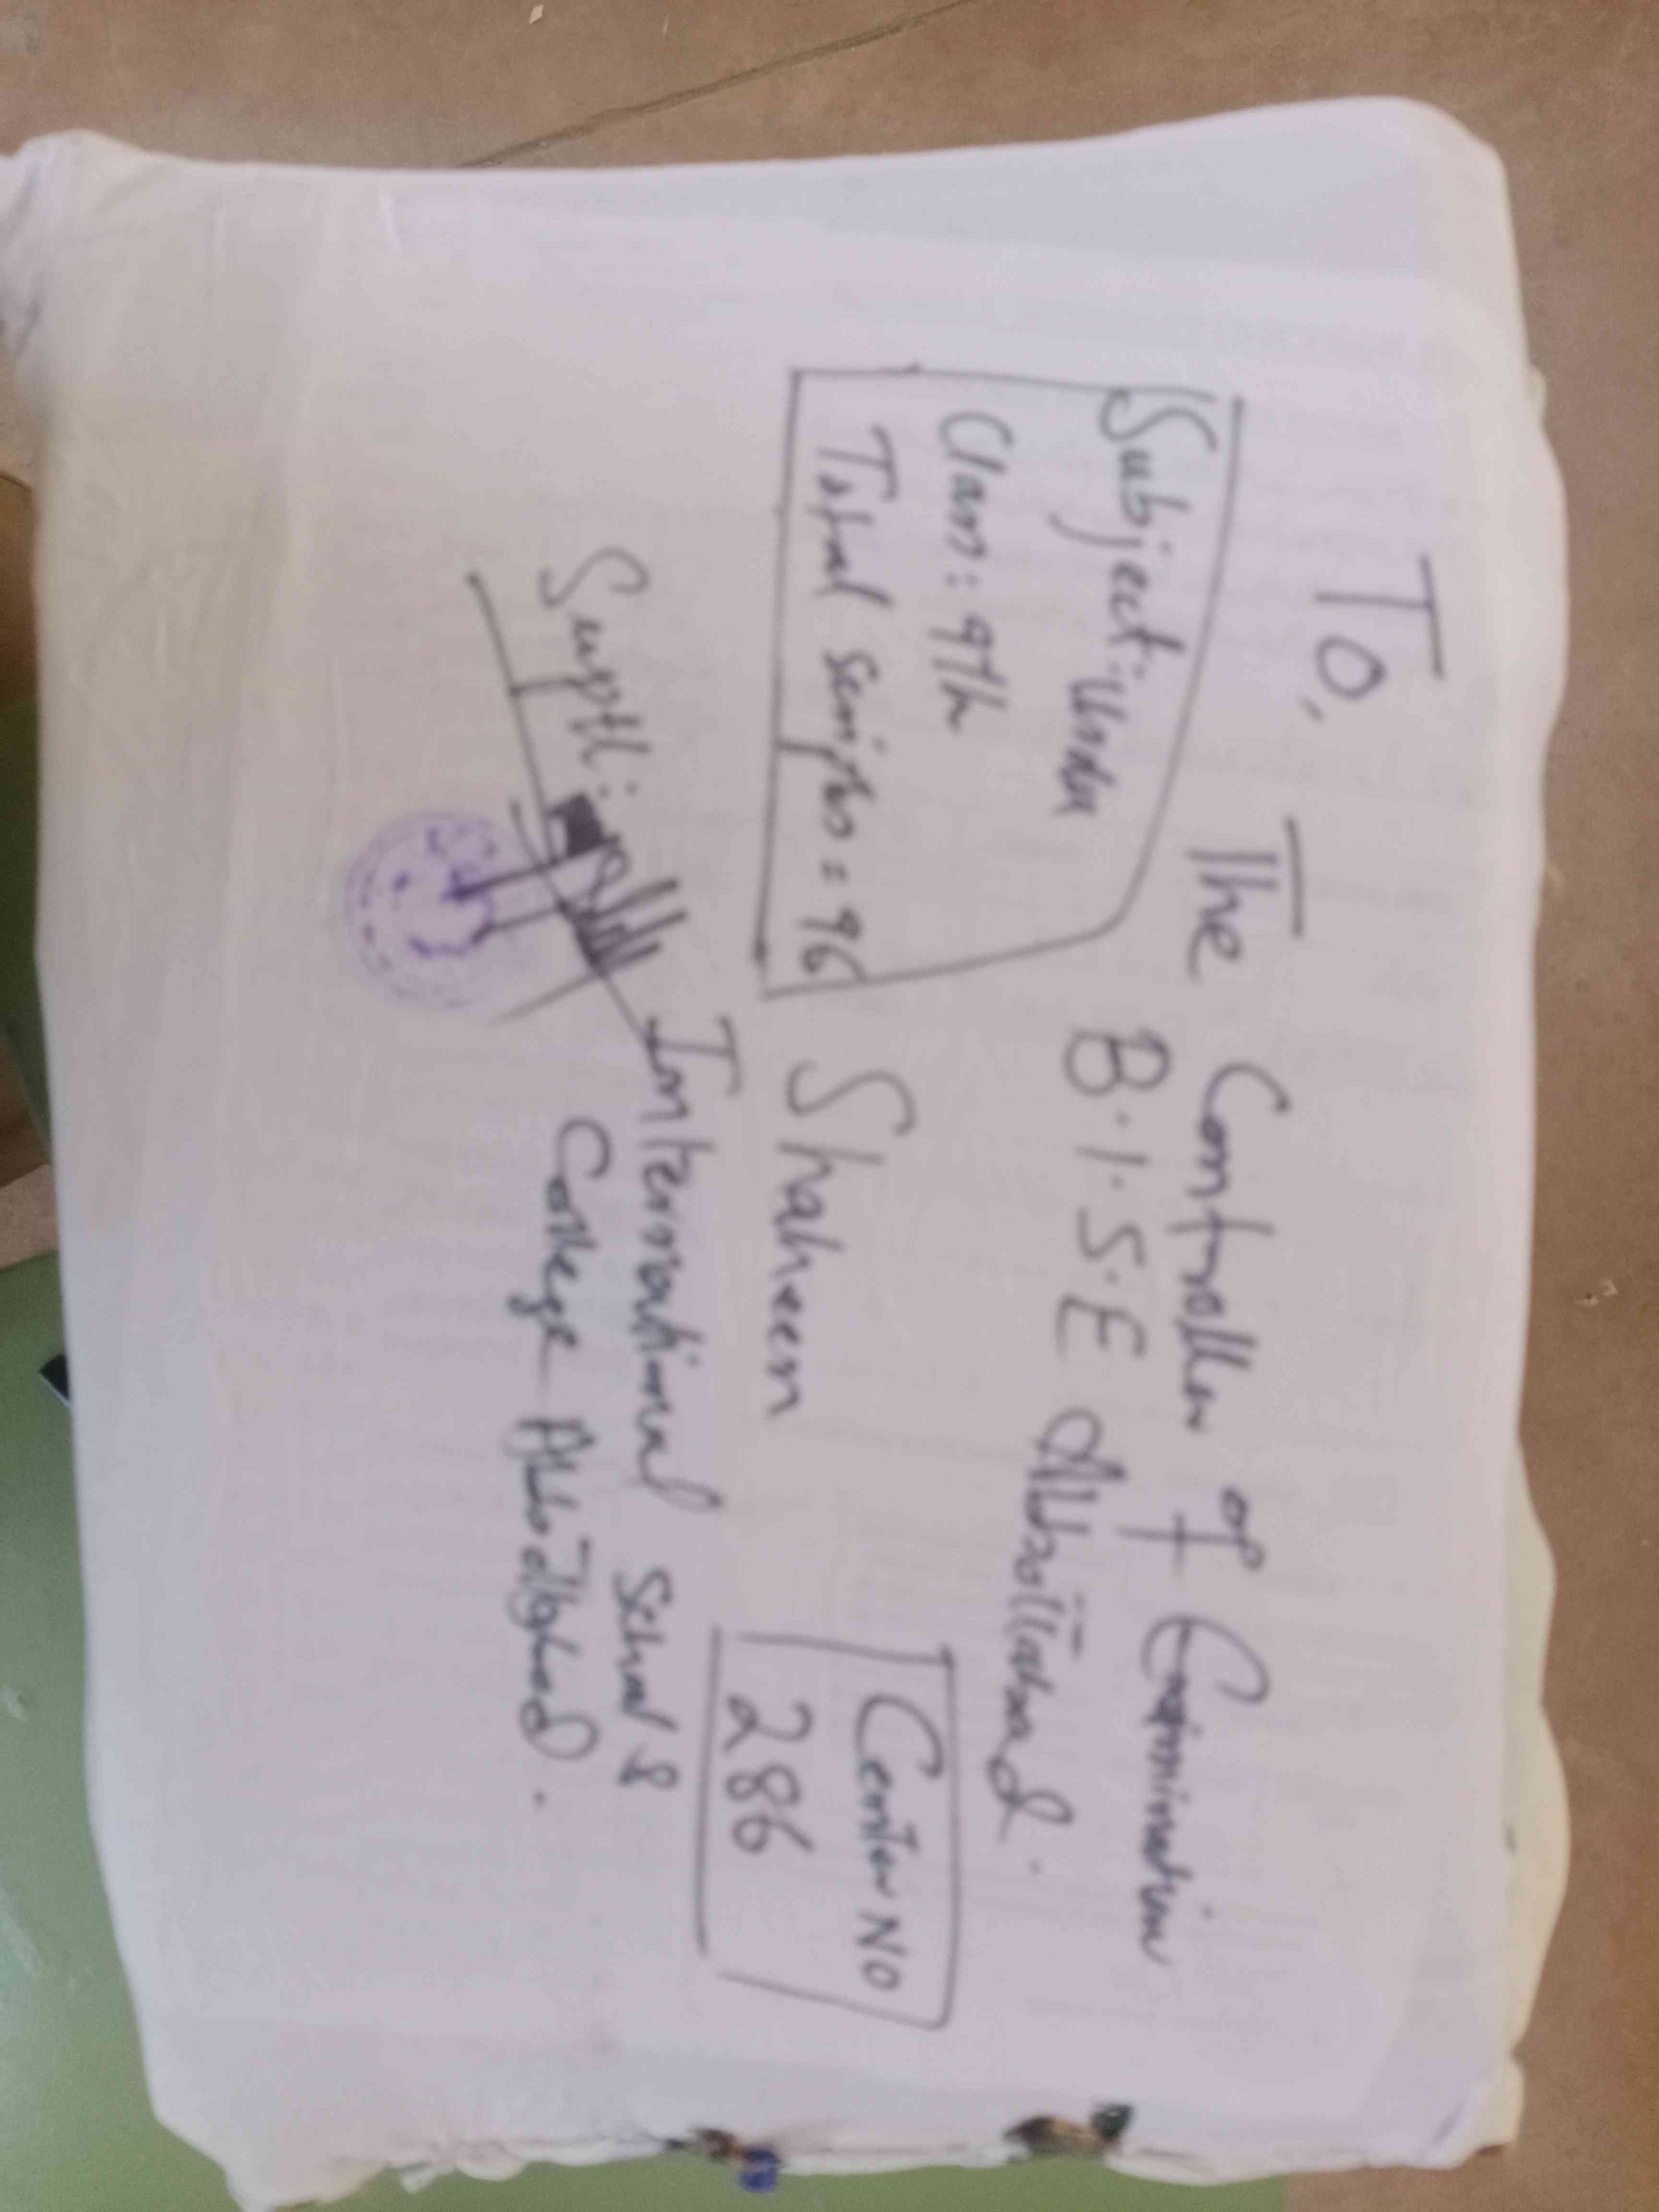 To,
The Controller of Examination
B.I.S.E Abbottabad.
Subject: Urdu
Class: 9th
Total scripts = 96
Center NO
286
Shaheen
International School &
College Abbottabad.
Suptt: